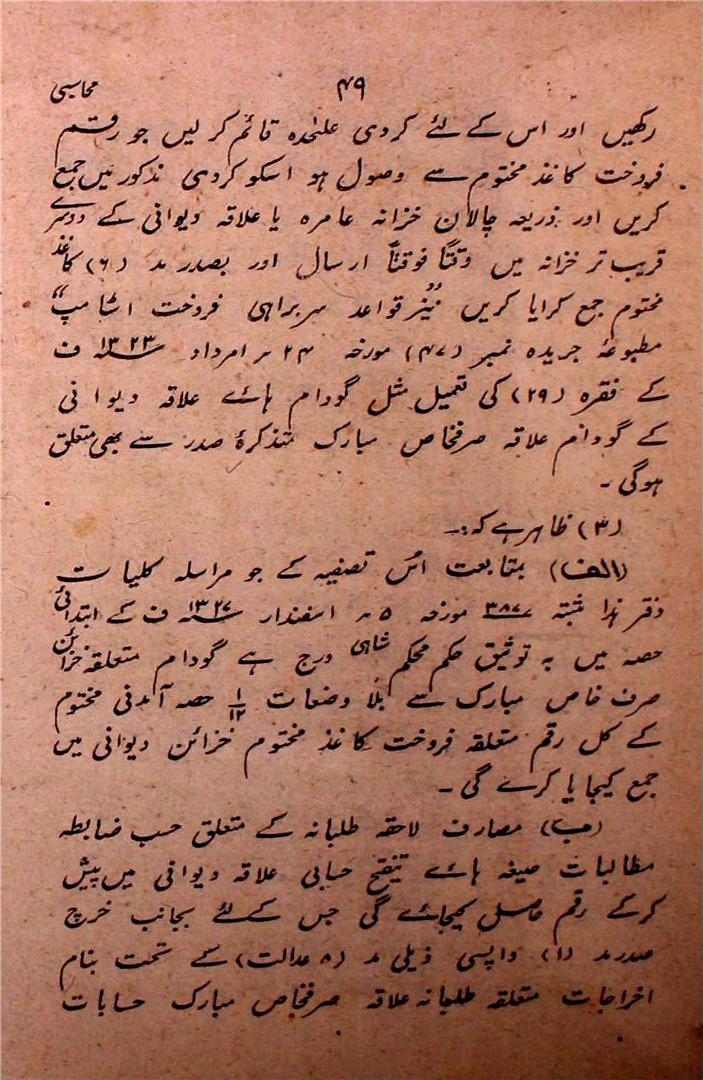 ۴۹
محاسبی
رکھیں اور اس کے لئے کردی علیحدہ قائم کر لیں جو رقم
فروخت کاغذ مختوم سے وصول ہو اسکو کردی مذکور میں جمع
کریں اور ذریعہ چالان خزانہ عامرہ یا علاقہ دیوانی کے دوسرے
قریب تر خزانہ میں وقتاً فوقتاً ارسال اور بصدر مد (۶) کاغذ
مختوم جمع کرایا کریں نیز "قواعد سربراہی فروخت اشامپ"
مطبوعۂ جریدہ نمبر (۴۷) مورخہ ۲۴ ر امرداد ۱۳۲۳ ف
کے فقرہ (۲۹) کی تعمیل مثل گودام ہائے علاقہ دیوانی
کے گودام علاقہ صرفخاص مبارک متذکرۂ صدر سے بھی متعلق
ہوگی ۔
(۳) ظاہر ہے کہ:۔
(الف) بمتابعت اُس تصفیہ کے جو مراسلہ کلیات
دفتر ہذا مثبتہ ۳۸۷۷ مورخہ ۵ ر اسفندار ۱۳۲۷ ف کے ابتدائی
حصہ میں بہ توثیق حکم محکم شاہی درج ہے گودام متعلقہ خزائن
صرف خاص مبارک سے بلا وضعات ۱/۱۲ حصہ آمدنی مختوم
کے کل رقم متعلقہ فروخت کاغذ مختوم خزائن دیوانی میں
جمع کیجایا کرے گی ۔
(ب) مصارف لاحقہ طلبانہ کے متعلق حسب ضابطہ
مطالبات صیغہ ہائے تنقیح حسابی علاقہ دیوانی میں پیش
کرکے رقم حاصل کیجائے گی جس کے لئے بجانب خرچ
صدر مد (۱) واپسی ذیلی مد (۸ عدالت) کے تحت بنام
اخراجات متعلقہ طلبانہ علاقہ صرفخاص مبارک حسابات